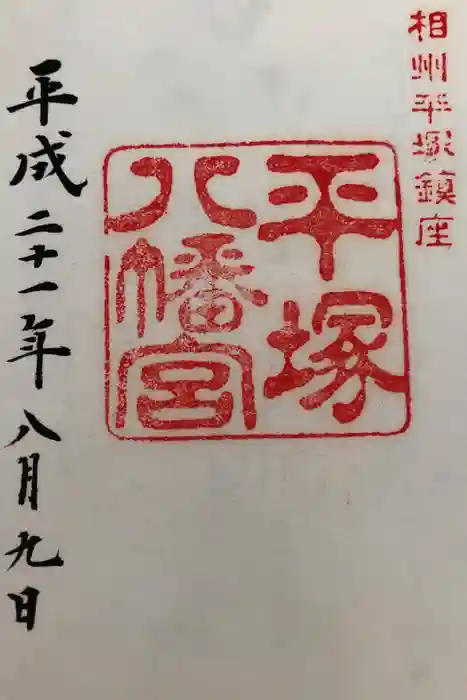 相州平塚鎮座
平塚
八幡宮
平成二十一年八月九日